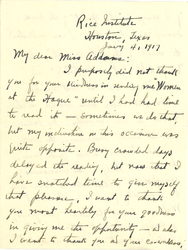 Rice Institute
Houston, Texas
Jan'y 4, 1917
My dear Miss Addams:
I purposely did not thank
you for your kindness in sending me "Women
at the Hague" until I had had time
to read it — Sometimes we do that,
but my inclination on this occasion was
quite opposite. Busy crowded days
delayed the reading, but now that I
have snatched time to give myself
that pleasure, I want to thank
you most heartily for your goodness
in giving me the opportunity — I also
want to thank you and your coworkers